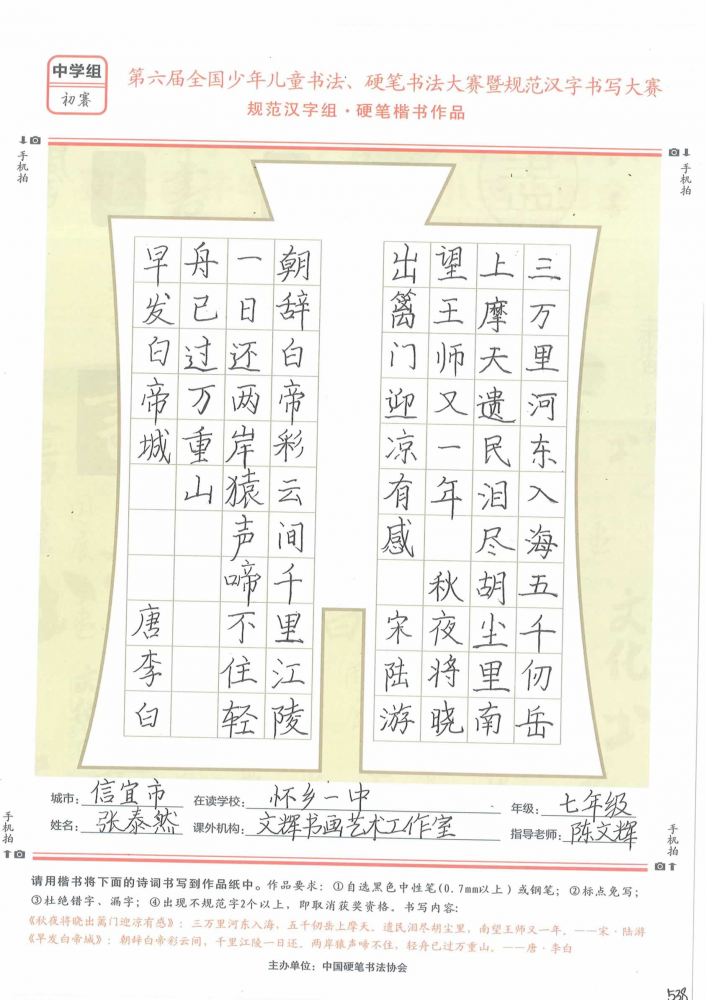 中学组
初赛
第六届全国少年儿童书法、硬笔书法大赛暨规范汉字书写大赛
规范汉字组·硬笔楷书作品
手机拍
手机拍
三万里河东入海五千仞岳
上摩天遗民泪尽胡尘里南
望王师又一年 秋夜将晓
出篱门迎凉有感 宋陆游
朝辞白帝彩云间千里江陵
一日还两岸猿声啼不住轻
舟已过万重山
早发白帝城 唐李白
城市：信宜市 在读学校：怀乡一中 年级：七年级
姓名：张泰然 课外机构：文辉书画艺术工作室 指导老师：陈文辉
手机拍
手机拍
请用楷书将下面的诗词书写到作品纸中。作品要求：①自选黑色中性笔(0.7mm以上)或钢笔；②标点免写；
③杜绝错字、漏字；④出现不规范字2个以上，即取消获奖资格。书写内容：
《秋夜将晓出篱门迎凉有感》：三万里河东入海，五千仞岳上摩天。遗民泪尽胡尘里，南望王师又一年。——宋·陆游
《早发白帝城》：朝辞白帝彩云间，千里江陵一日还。两岸猿声啼不住，轻舟已过万重山。——唐·李白
主办单位：中国硬笔书法协会
538